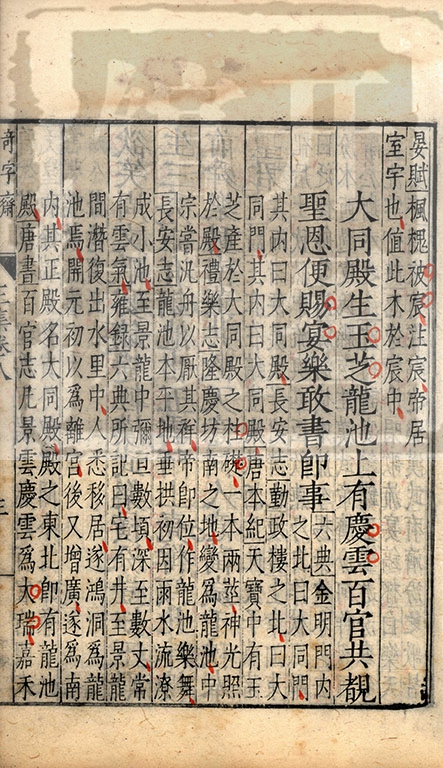 晏賦楓槐被宸注宸帝居
室宇也值此木於宸中
大同殿生玉芝龍池上有慶雲百官共覩
聖恩便賜宴樂敢書即事
六典金明門內
之北曰大同門
其內曰大同殿長安志勤政樓之北曰大
同門其內曰大同殿唐本紀天寶中有玉
芝產於大同殿之柱礎一本兩莖神光照
於殿禮樂志隆慶坊南之地變爲龍池中
宗嘗汎舟以厭其祥帝即位作龍池樂舞
長安志龍池本平地垂拱初因雨水流潦
成小池至景龍中彌亘數頃深至數丈常
有雲氣雍錄六典所記曰宅有井至景龍
間潛復出水里中人悉移居遂鴻洞爲龍
池焉開元初以爲離宮後又增廣遂爲南
內其正殿名大同殿殿之東北即有龍池
殿唐書百官志凡景雲慶雲爲大瑞嘉禾
奇字齋
三